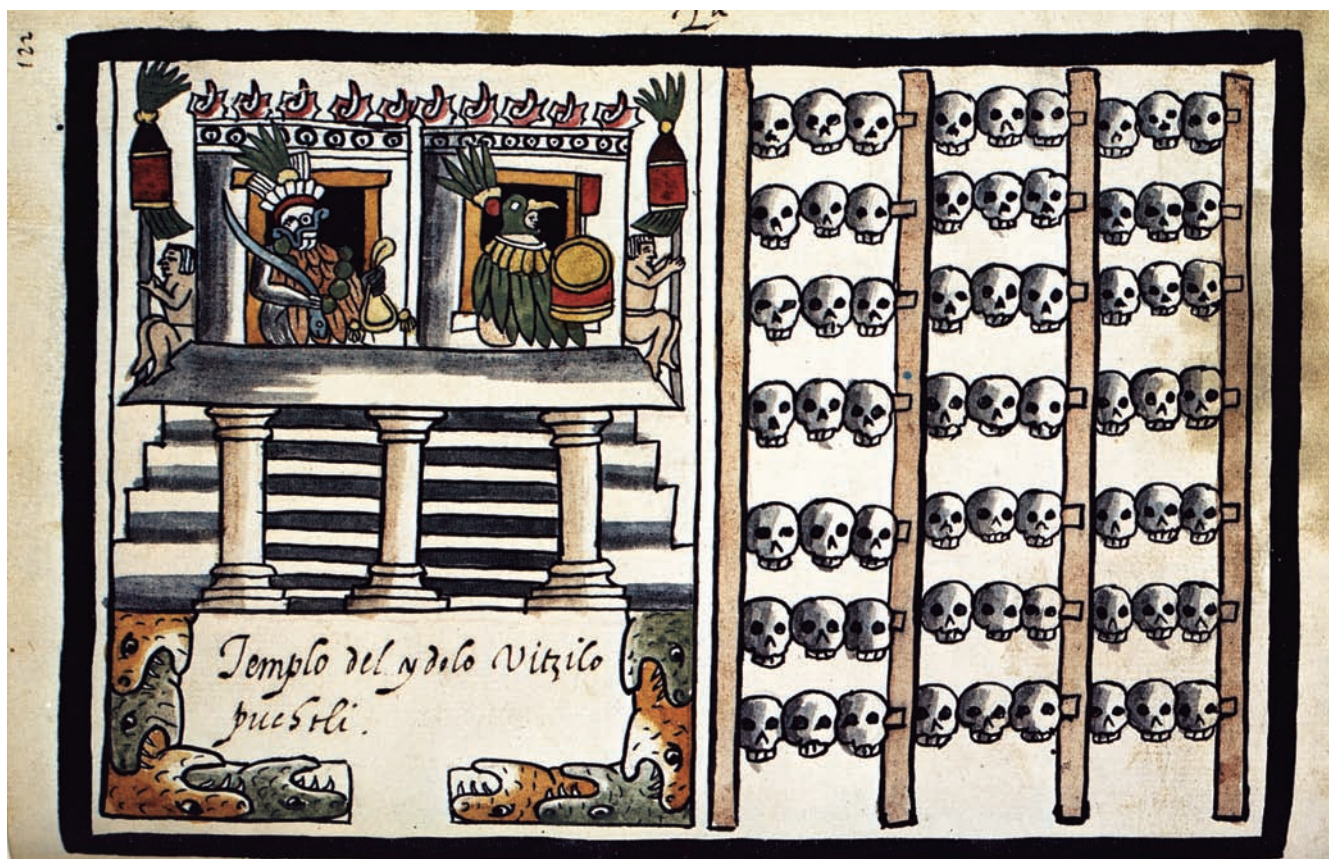 122
Templo del ydolo Vitzilo
puchtli.